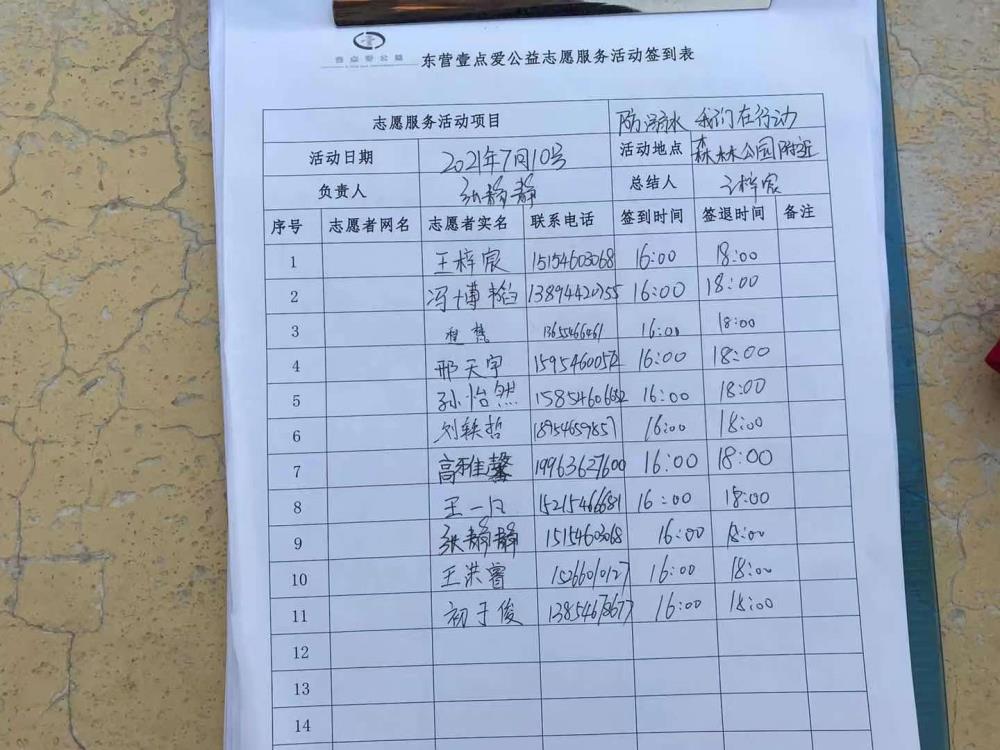 壹点爱公益
东营壹点爱公益志愿服务活动签到表
志愿服务活动项目 防溺水 我们在行动
活动日期 2021年7月10号 活动地点 森林公园附近
负责人 张静静 总结人 王梓宸
序号 志愿者网名 志愿者实名 联系电话 签到时间 签退时间 备注
1 王梓宸 15154603068 16:00 18:00
2 冯博韬 13894420755 16:00 18:00
3 16:00 18:00
4 邢天宇 16:00 18:00
5 孙怡然 16:00 18:00
6 刘轶哲 18954659857 16:00 18:00
7 高雅馨 19963627600 16:00 18:00
8 王一凡 15215466681 16:00 18:00
9 张静静 15154603068 16:00 18:00
10 王洪睿 15266010127 16:00 18:00
11 初于俊 16:00 18:00
12
13
14